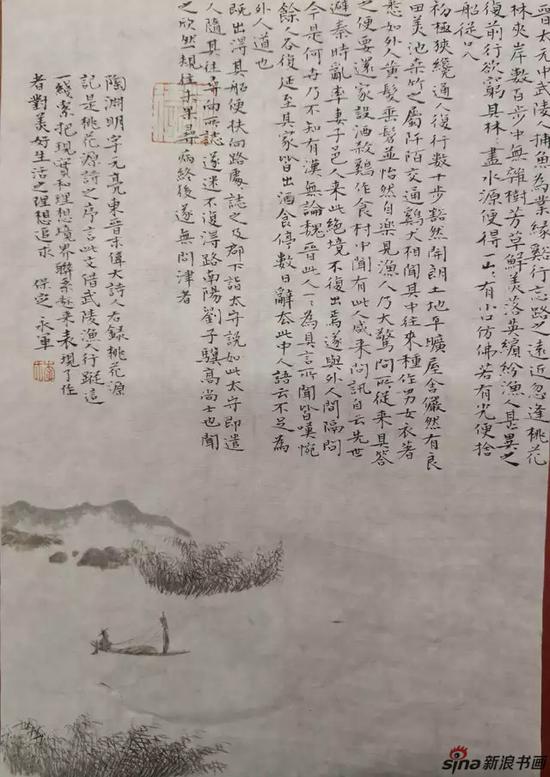 晋太元中武陵 捕魚為業緣谿行忘路之遠近忽逢桃花
林夾岸數百步中無雜樹芳草鮮美落英繽紛漁人甚異之
復前行欲窮其林〻盡水源便得一山〻有小口仿佛若有光便捨
船從口入
初極狹纔通人復行數十步豁然開朗土地平曠屋舍儼然有良
田美池桑竹之屬阡陌交通鷄犬相聞其中往來種作男女衣著
悉如外人黃髮垂髫並怡然自樂見漁人乃大驚問所從來具答
之便要還家設酒殺鷄作食村中聞有此人咸來問訊自云先世
避秦時亂率妻子邑人來此絕境不復出焉遂與外人間隔問
今是何世乃不知有漢無論魏晋此人一一為具言所聞皆嘆惋
餘人各復延至其家皆出酒食停數日辭去此中人語云不足為
外人道也
既出得其船便扶向路處〻誌之及郡下詣太守說如此太守即遣
人隨其往尋向所誌遂迷不復得路南陽劉子驥高尚士也聞
之欣然規往未果尋病終後遂無問津者
陶淵明字元亮東晉末偉大詩人右錄桃花源
記是桃花源詩之序言此文借武陵漁人行蹤這
一綫索把現實和理想境界聯系起來表現了作
者對美好生活之理想追求 保定永軍
sina新浪书画